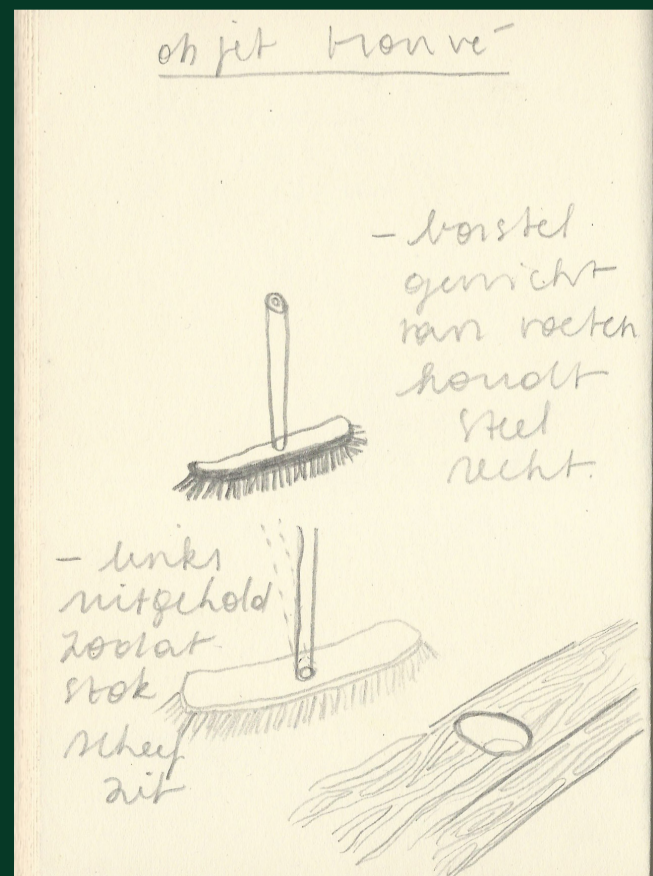 objet trouvé
- borstel
gewicht
van voeten
houdt
steel
recht.
- links
uitgehold
zodat
stok
scheef
zit